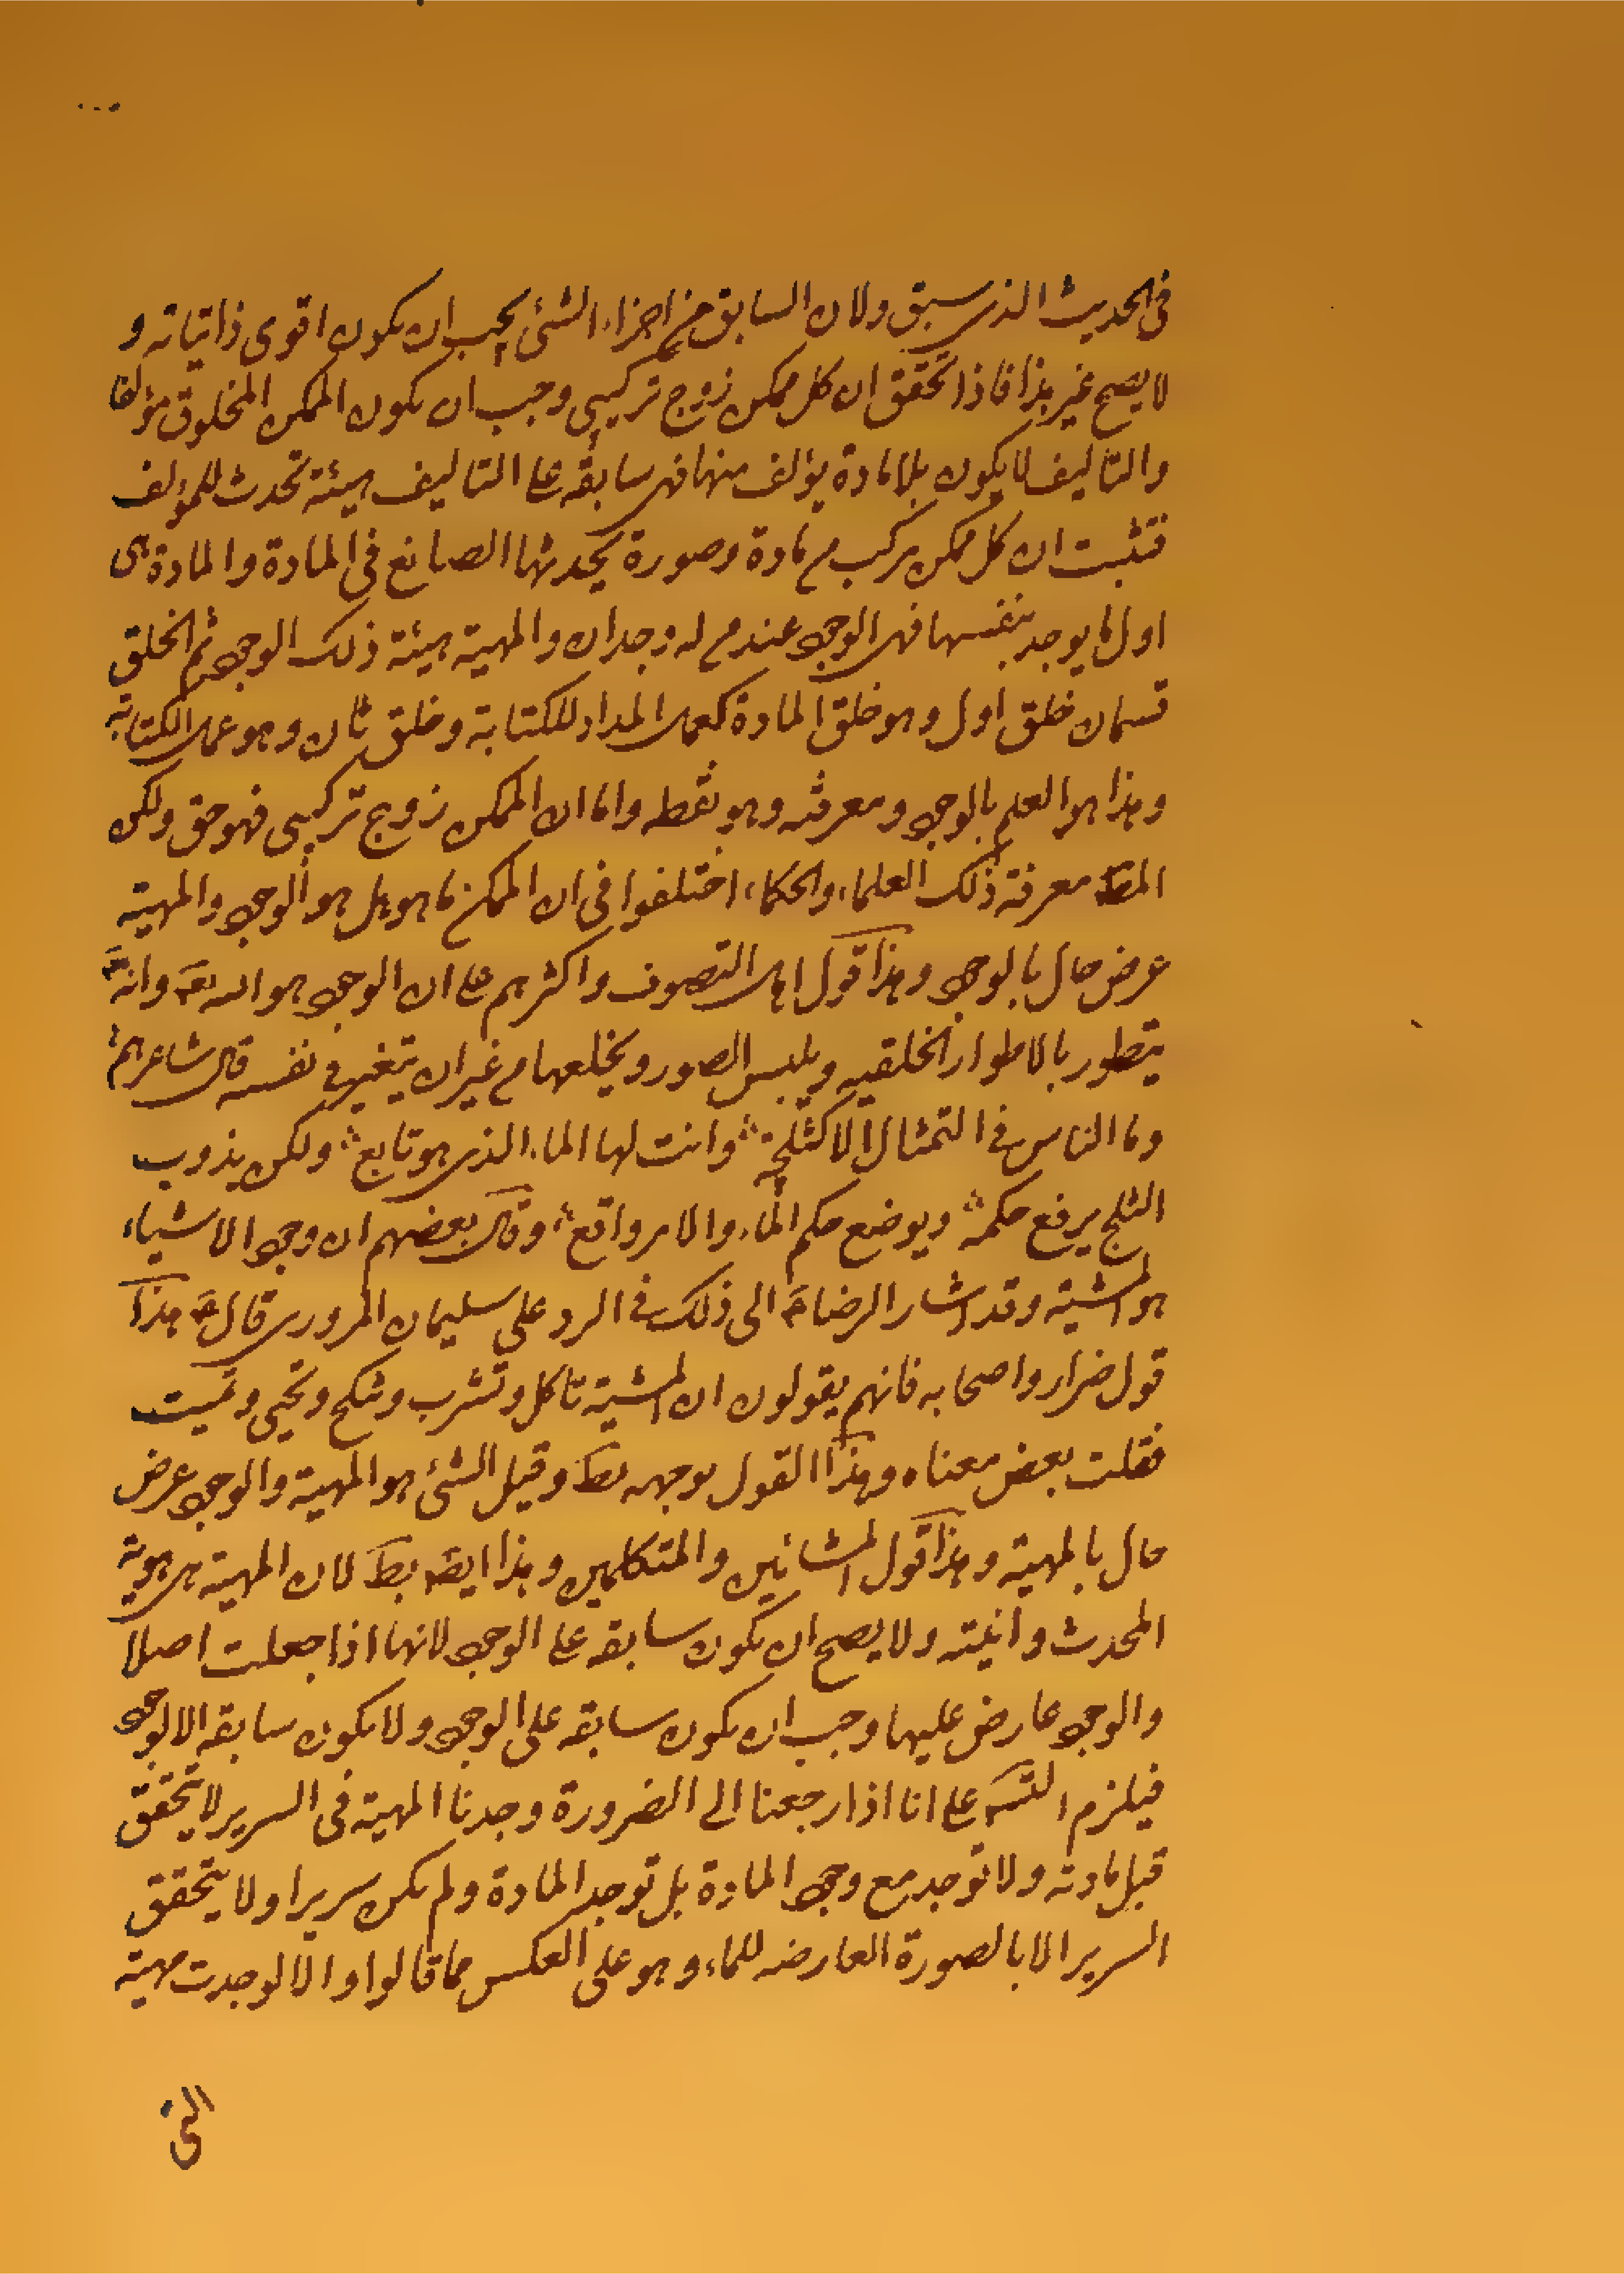 في الحديث الذي سبق ولان السابق من اجزاء الشئ يجب ان يكون اقوى ذاتياته و
لا يصح غير هذا فاذا تحقق ان كل ممكن زوج تركيبي وجب ان يكون الممكن المخلوق مؤلفا
والتاليف لا يكون بلا مادة يؤلف منها فهي سابقة على التاليف هيئة تحدث للمؤلف
فثبت ان كل ممكن مركب من مادة وصورة يحدثها الصانع في المادة والمادة هي
اول ما يوجد بنفسها فهي الوجود عند من له وجدان والمهية هيئة ذلك الوجود ثم الخلق
قسمان خلق اول وهو خلق المادة كعمل المداد للكتابة وخلق ثان وهو عمل الكتابة
وهذا هو العلم بالوجود ومعرفته وهو نقطه واما ان الممكن زوج تركيبي فهو حق ولكن
المط معرفة ذلك العلماء والحكماء اختلفوا في ان الممكن ما هو هل هو الوجود والمهية
عرض حال بالوجود وهذا قول اهل التصوف واكثرهم على ان الوجود هو الله تع وانه
يتطور بالاطوار الخلقيه ويلبس الصور ويخلعها من غير ان يتغير في نفسه قال شاعرهم
وما الناس في التمثال الا كثلجة وانت لها الماء الذي هو تابع ولكن بذوب
الثلج يرفع حكمه ويوضع حكم الماء والامر واقع وقال بعضهم ان وجود الاشياء
هو المشية وقد اشار الرضا ع الى ذلك في الرد على سليمان المروزي قال ع هذا
قول ضرار واصحابه فانهم يقولون ان المشية تاكل وتشرب وتنكح وتحيى وتميت
فقلت بعض معناه وهذا القول بوجهه بط وقيل الشئ هو المهية والوجود عرض
حال بالمهية وهذا قول المشائين والمتكلمين وهذا ايض بط لان المهية هي هوية
المحدث وانيته ولا يصح ان يكون سابقه على الوجود لانها اذا جعلت اصلا
والوجود عارض عليها وجب ان يكون سابقه على الوجود ولا يكون سابقه الا لوجود
فيلزم التس على انا اذا رجعنا الى الضرورة وجدنا المهية في السرير لا يتحقق
قبل مادته ولا توجد مع وجود المادة بل توجد المادة ولم يكن سريرا ولا يتحقق
السرير الا بالصورة العارضه للماء وهو على العكس مما قالوا والا لوجدت مهية